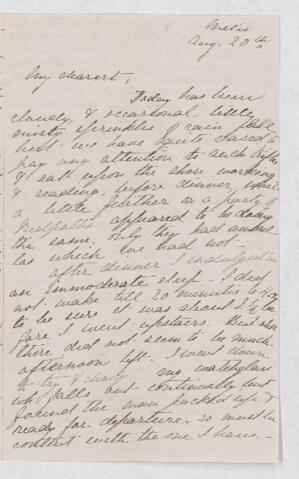 Metis
Aug. 20th
My dearest,
Today has been
cloudy & occasional little
misty sprinkles of rain fall
but we have quite ceased to
pay any attention to such trifles
& sat upon the shore working
& reading, before dinner, while
a little further on a party of
Redpaths appeared to be doing
the same, only they had umbrel
las which we had not -
after dinner I indulged in
an immoderate sleep - I did
not wake till 20 minutes to 4,
to be sure it was about 2½ be
fore I went upstairs. But
there did not seem to be much
afternoon left - I went down
to try & change my watchglass
wh. falls out continually but
found the man packed up &
ready for departure, so must be
content with the one I have -